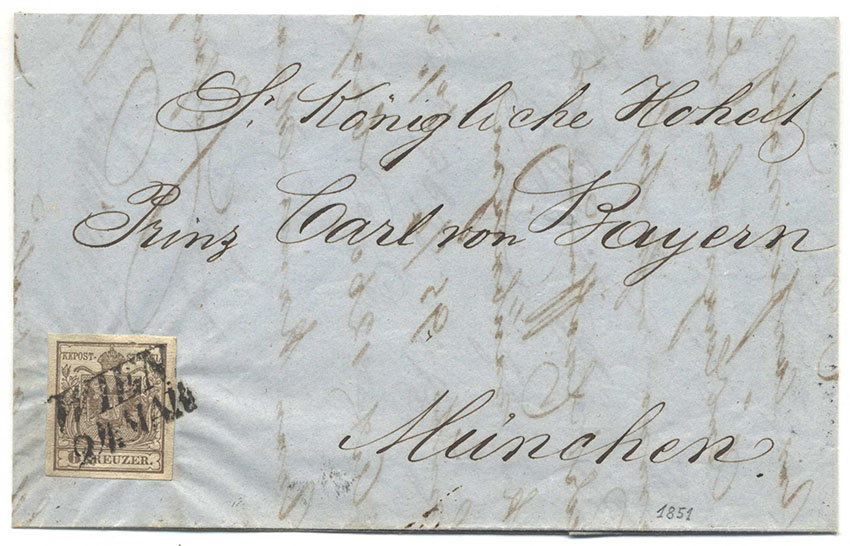 Sr. Königliche Hoheit
Prinz Carl von Bayern
KKPOST-
WIEN
24. MAI
KREUZER.
München.
1851